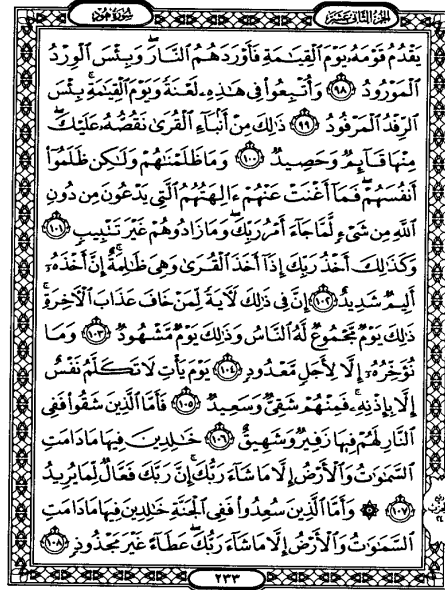 الجزء الثاني عشر
سورة هود
يَقْدُمُ قَوْمَهُۥ يَوْمَ ٱلْقِيَـٰمَةِ فَأَوْرَدَهُمُ ٱلنَّارَ ۖ وَبِئْسَ ٱلْوِرْدُ
ٱلْمَوْرُودُ ﴿٩٨﴾ وَأُتْبِعُوا۟ فِى هَـٰذِهِۦ لَعْنَةً وَيَوْمَ ٱلْقِيَـٰمَةِ ۚ بِئْسَ
ٱلرِّفْدُ ٱلْمَرْفُودُ ﴿٩٩﴾ ذَٰلِكَ مِنْ أَنۢبَآءِ ٱلْقُرَىٰ نَقُصُّهُۥ عَلَيْكَ ۖ
مِنْهَا قَآئِمٌ وَحَصِيدٌ ﴿١٠٠﴾ وَمَا ظَلَمْنَـٰهُمْ وَلَـٰكِن ظَلَمُوٓا۟
أَنفُسَهُمْ ۖ فَمَآ أَغْنَتْ عَنْهُمْ ءَالِهَتُهُمُ ٱلَّتِى يَدْعُونَ مِن دُونِ
ٱللَّهِ مِن شَىْءٍ لَّمَّا جَآءَ أَمْرُ رَبِّكَ ۖ وَمَا زَادُوهُمْ غَيْرَ تَتْبِيبٍ ﴿١٠١﴾
وَكَذَٰلِكَ أَخْذُ رَبِّكَ إِذَآ أَخَذَ ٱلْقُرَىٰ وَهِىَ ظَـٰلِمَةٌ ۚ إِنَّ أَخْذَهُۥٓ
أَلِيمٌ شَدِيدٌ ﴿١٠٢﴾ إِنَّ فِى ذَٰلِكَ لَـَٔايَةً لِّمَنْ خَافَ عَذَابَ ٱلْـَٔاخِرَةِ ۚ
ذَٰلِكَ يَوْمٌ مَّجْمُوعٌ لَّهُ ٱلنَّاسُ وَذَٰلِكَ يَوْمٌ مَّشْهُودٌ ﴿١٠٣﴾ وَمَا
نُؤَخِّرُهُۥٓ إِلَّا لِأَجَلٍ مَّعْدُودٍ ﴿١٠٤﴾ يَوْمَ يَأْتِ لَا تَكَلَّمُ نَفْسٌ
إِلَّا بِإِذْنِهِۦ ۚ فَمِنْهُمْ شَقِىٌّ وَسَعِيدٌ ﴿١٠٥﴾ فَأَمَّا ٱلَّذِينَ شَقُوا۟ فَفِى
ٱلنَّارِ لَهُمْ فِيهَا زَفِيرٌ وَشَهِيقٌ ﴿١٠٦﴾ خَـٰلِدِينَ فِيهَا مَا دَامَتِ
ٱلسَّمَـٰوَٰتُ وَٱلْأَرْضُ إِلَّا مَا شَآءَ رَبُّكَ ۚ إِنَّ رَبَّكَ فَعَّالٌ لِّمَا يُرِيدُ
﴿١٠٧﴾ ۞ وَأَمَّا ٱلَّذِينَ سُعِدُوا۟ فَفِى ٱلْجَنَّةِ خَـٰلِدِينَ فِيهَا مَا دَامَتِ
ٱلسَّمَـٰوَٰتُ وَٱلْأَرْضُ إِلَّا مَا شَآءَ رَبُّكَ ۖ عَطَآءً غَيْرَ مَجْذُوذٍ ﴿١٠٨﴾
٢٣٣